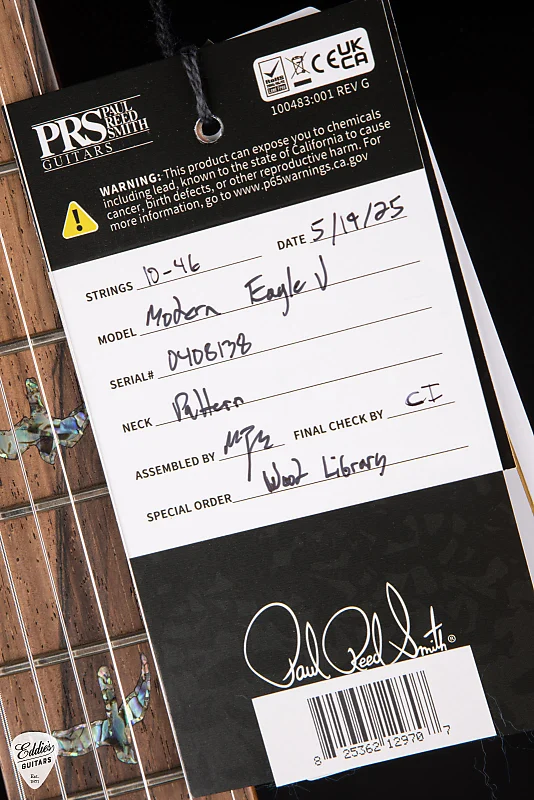 PRS PAUL REED SMITH
GUITARS
RoHS
CE UK CA
100483:001 REV G
WARNING: This product can expose you to chemicals
including lead, known to the state of California to cause
cancer, birth defects, or other reproductive harm. For
more information, go to www.p65warnings.ca.gov
STRINGS 10-46 DATE 5/19/25
MODEL Modern Eagle V
SERIAL# 0408138
NECK Pattern
ASSEMBLED BY FINAL CHECK BY CI
SPECIAL ORDER Wood Library
Paul Reed Smith®
8 25362 12970 7
Eddie's
GUITARS
Est.